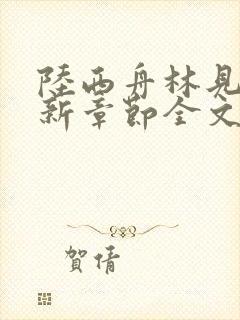 陸西舟林見
新章節全文
賀倩